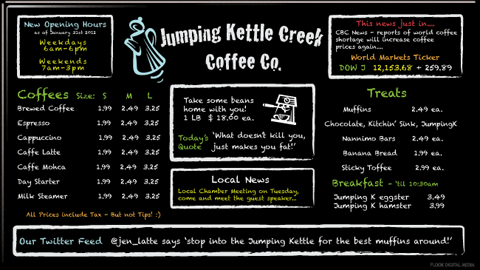 New Opening Hours
as of January 31st 2012
Weekdays
6am-6pm
Weekends
7am-3pm
Jumping Kettle Creek
Coffee Co.
This news just in....
CBC News - reports of world coffee
shortage will increase coffee
prices again....
World Markets Ticker
DOW J 12,153.68 + 259.89
Coffees Size: S M L
Brewed Coffee 1.99 2.49 3.25
Espresso 1.99 2.49 3.25
Cappuccino 1.99 2.49 3.25
Caffe Latte 1.99 2.49 3.25
Caffe Mohca 1.99 2.49 3.25
Day Starter 1.99 2.49 3.25
Milk Steamer 1.99 2.49 3.25
All Prices include Tax - But not Tips! :)
Take some beans
home with you!
1 LB $ 18.60 ea.
Today's
Quote
'What doesn't kill you,
just makes you fat!'
Local News
Local Chamber Meeting on Tuesday,
come and meet the guest speaker...
Treats
Muffins 2.49 ea.
Chocolate, Kitchin' Sink, JumpingK
Nannimo Bars 2.49 ea.
Banana Bread 1.99 ea.
Sticky Toffee 2.99 ea.
Breakfast - 'till 10:30am
Jumping K eggster 3.49
Jumping K hamster 3.99
Our Twitter Feed @jen_latte says 'stop into the Jumping Kettle for the best muffins around!'